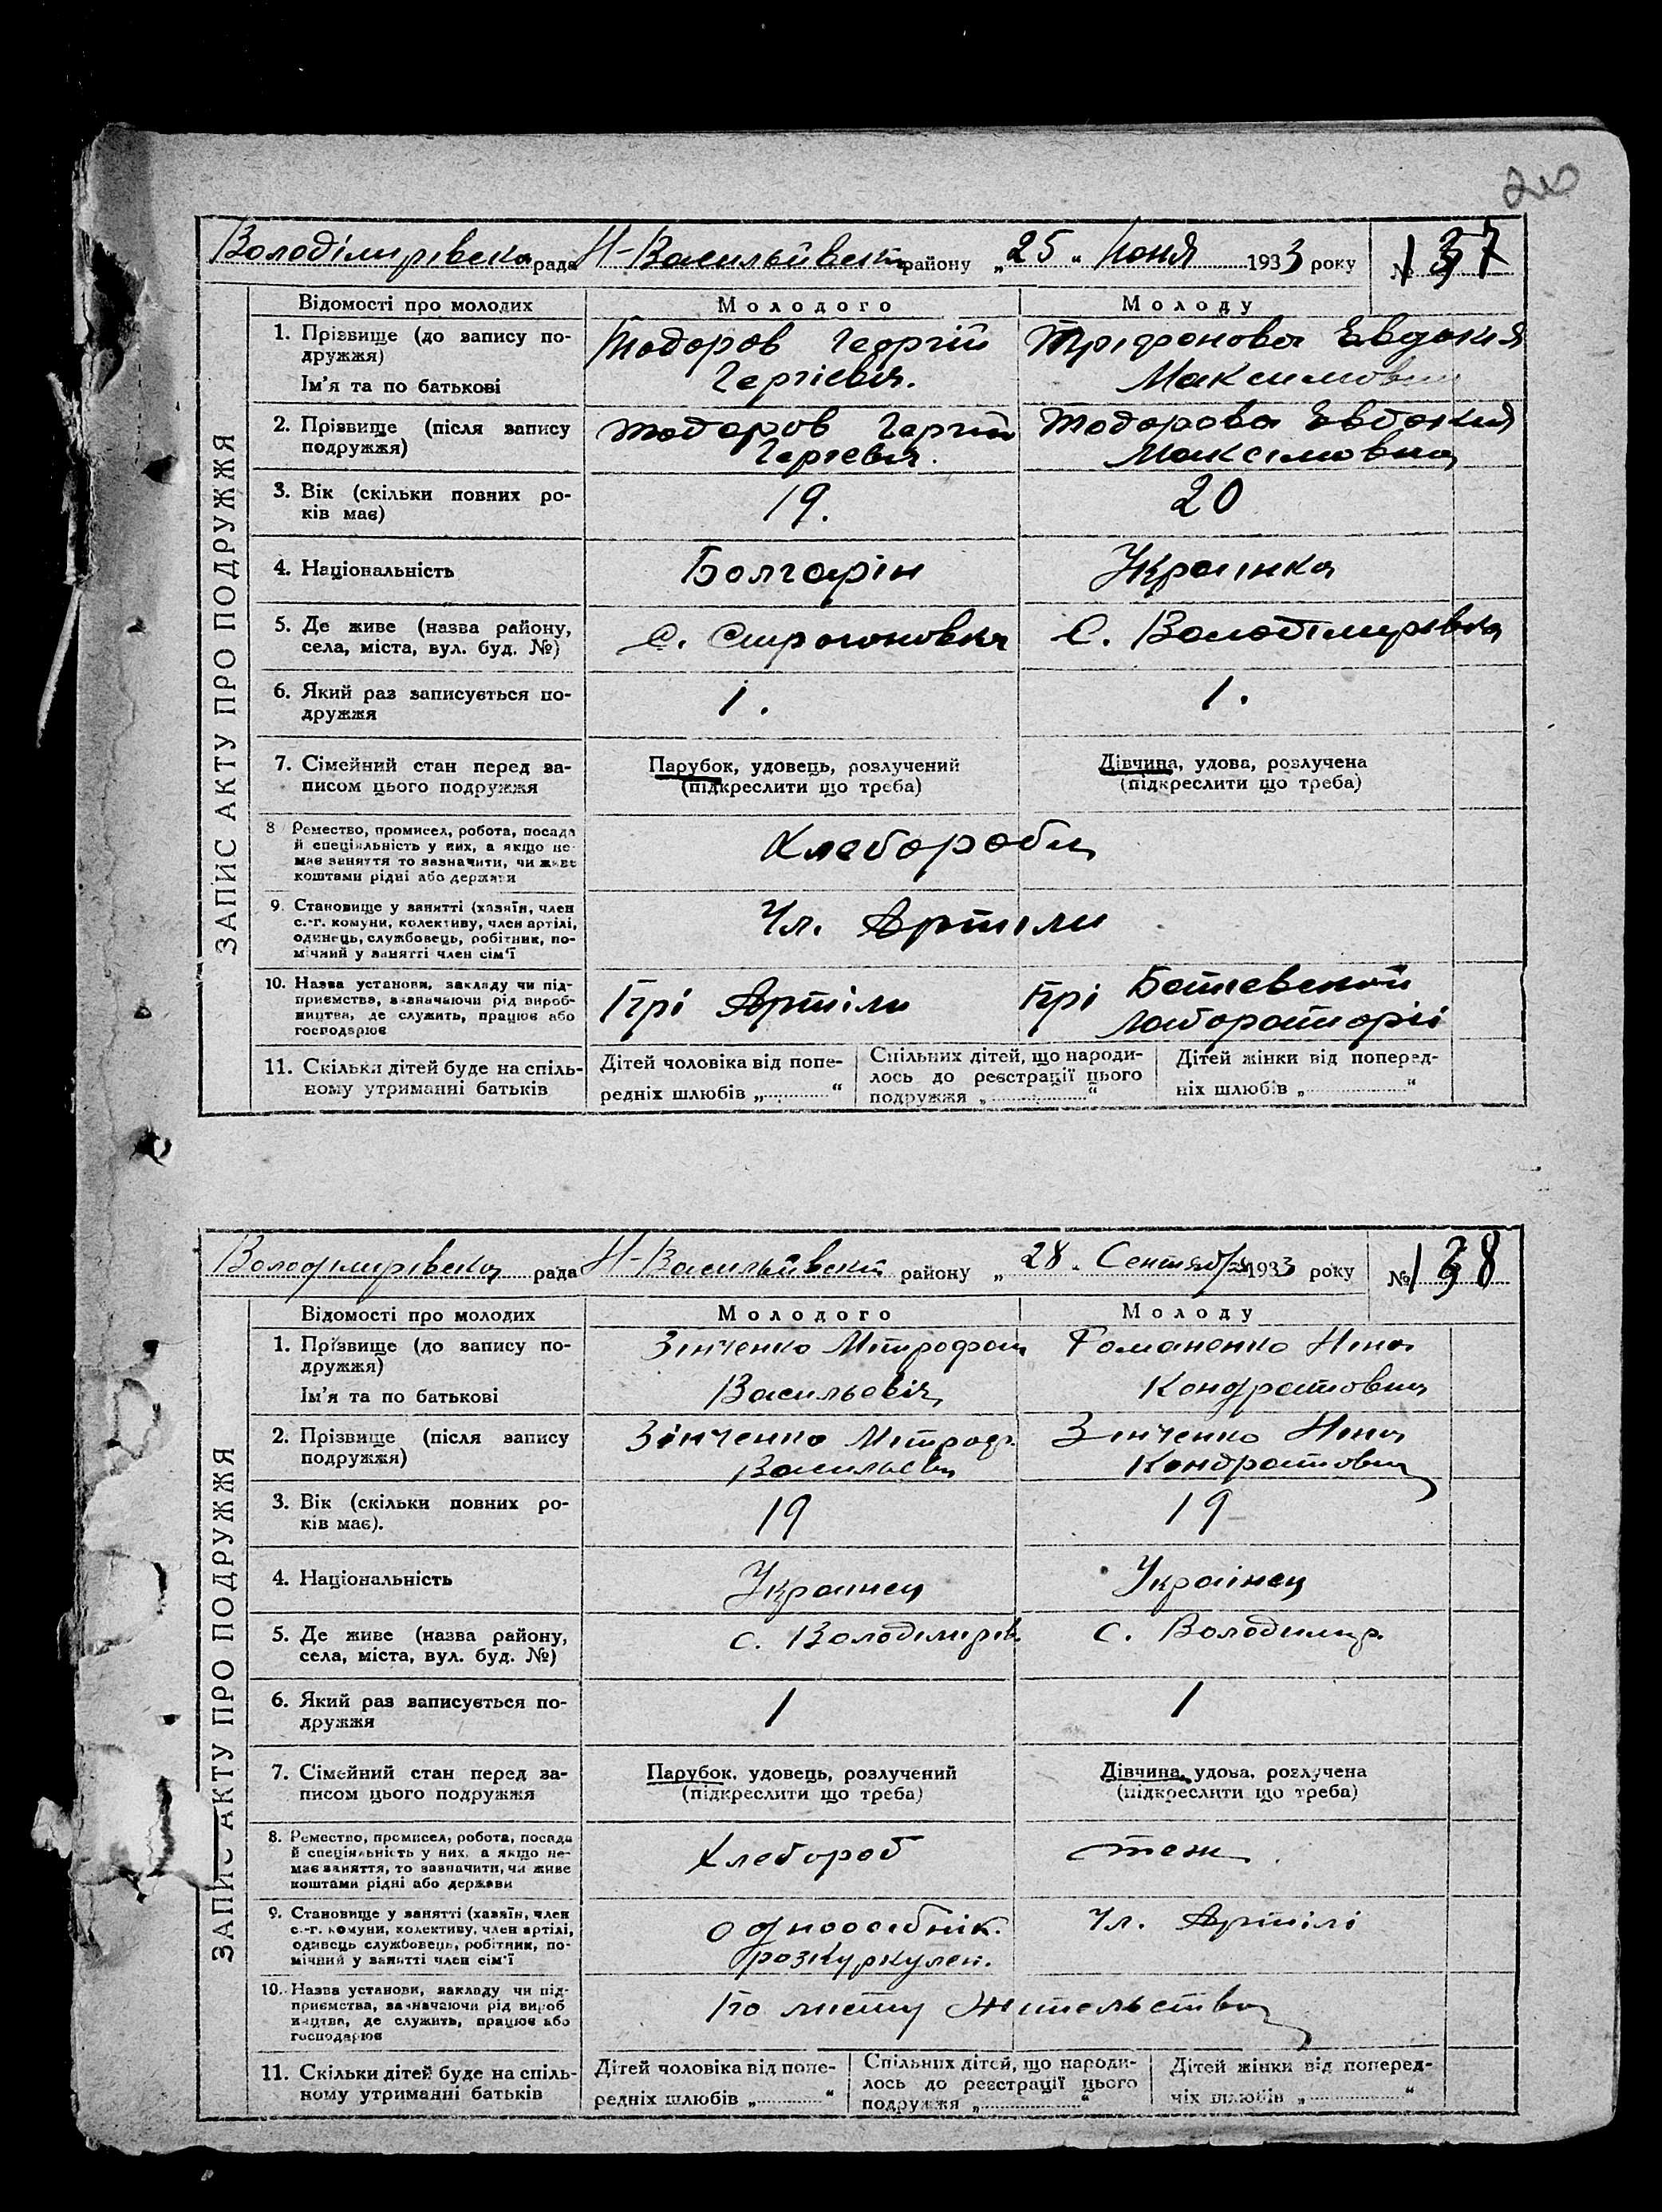 Володілирівска рада Н-Васильївськ району „25“ Июня 1933 року № 137
ЗАПИС АКТУ ПРО ПОДРУЖЖЯ
Відомості про молодих Молодого Молоду
1. Прізвище (до запису по-
дружжя)
Ім'я та по батькові
Тодоров Георгій
Гергіевіч.
Тріфонова Евдокия
Максимовна
2. Прізвище (після запису
подружжя)
Тодоров Гергій
Гергевіч.
Тодорова Евдокия
Максімовна
3. Вік (скільки повних ро-
ків має)
19.
20
4. Національність
Болгарін
Украинка
5. Де живе (назва району,
села, міста, вул. буд. №)
С. Строгоновка
С. Володімирівка
6. Який раз записується по-
дружжя
1.
1.
7. Сімейний стан перед за-
писом цього подружжя
Парубок, удовець, розлучений
(підкреслити що треба)
Дівчина, удова, розлучена
(підкреслити що треба)
8 Ремество, промисел, робота, посада
й спеціяльність у них, а якщо не
має заняття то зазначити, чи живе
коштами рідні або держави
Хлебороби
9. Становище у занятті (хазяїн, член
с.-г. комуни, колективу, член артілі,
одинець, службовець, робітник, по-
мічний у занятті член сім'ї
Чл. Артили
10. Назва установи, закладу чи під-
приємства, зазначаючи рід вироб-
ництва, де служить, працює або
господарює
Прі Артіли
Прі Ботіевской
лабораторіі
11. Скільки дітей буде на спіль-
ному утриманні батьків
Дітей чоловіка від попе-
редніх шлюбів „ “
Спільних дітей, що народи-
лось до реєстрації цього
подружжя „ “
Дітей жінки від поперед-
ніх шлюбів „ “
Володимирівска рада Н-Васильївськ району „28. Сентября 1933 року № 138
ЗАПИС АКТУ ПРО ПОДРУЖЖЯ
Відомості про молодих Молодого Молоду
1. Прізвище (до запису по-
дружжя)
Ім'я та по батькові
Зінченко Мітрофан
Васильевіч
Романенко Ніна
Кондратовна
2. Прізвище (після запису
подружжя)
Зінченко Мітроф.
Васильевич
Зінченко Ніна
Кондратовна
3. Вік (скільки повних ро-
ків має).
19
19
4. Національність
Украинец
Украінец
5. Де живе (назва району,
села, міста, вул. буд. №)
с. Володімирів.
с. Володимир.
6. Який раз записується по-
дружжя
1
1
7. Сімейний стан перед за-
писом цього подружжя
Парубок, удовець, розлучений
(підкреслити що треба)
Дівчина, удова, розлучена
(підкреслити що треба)
8. Ремество, промисел, робота, посада
й спеціяльність у них, а якщо не-
має заняття, то зазначити, чи живе
коштами рідні або держави
Хлебороб
теж
9. Становище у занятті (хазяїн, член
с.-г. комуни, колективу, член артілі,
одинець службовець, робітник, по-
мічний у занятті член сім'ї
одноосебнік.
розкуркулен.
Чл. Артілі
10. Назва установи, закладу чи під-
приємства, зазначаючи рід вироб
ництва, де служить, працює або
господарює
По листу Жительства
11. Скільки дітей буде на спіль-
ному утриманні батьків
Дітей чоловіка від попе-
редніх шлюбів „ “
Спільних дітей, що народи-
лось до реєстрації цього
подружжя „ “
Дітей жінки від поперед-
ніх шлюбів „ “